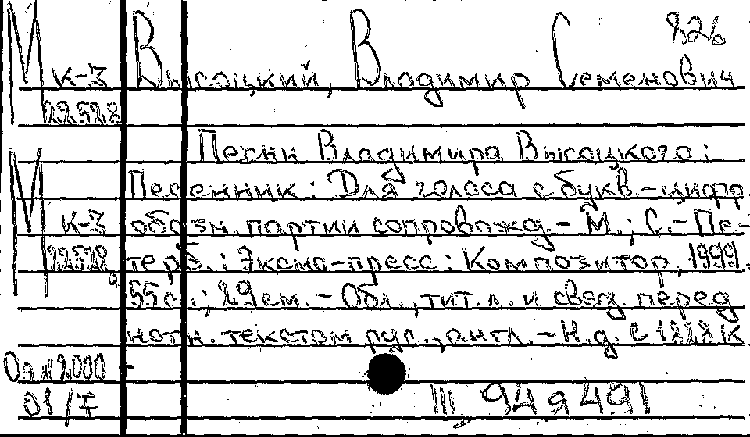 826
М к-3 Высоцкий, Владимир Семенович
22528
Песни Владимира Высоцкого:
М Песенник: Для голоса с букв.-цифр.
к-3 обозн. партии сопровожд. - М.; С.-Пе-
терб.: Эксмо-пресс: Композитор, 1999.
55с.; 29см. - Обл., тит. л. и свед. перед
нотн. текстом рус., англ. - Н.д. с 1228 к
2000
01/I III 94 а 491